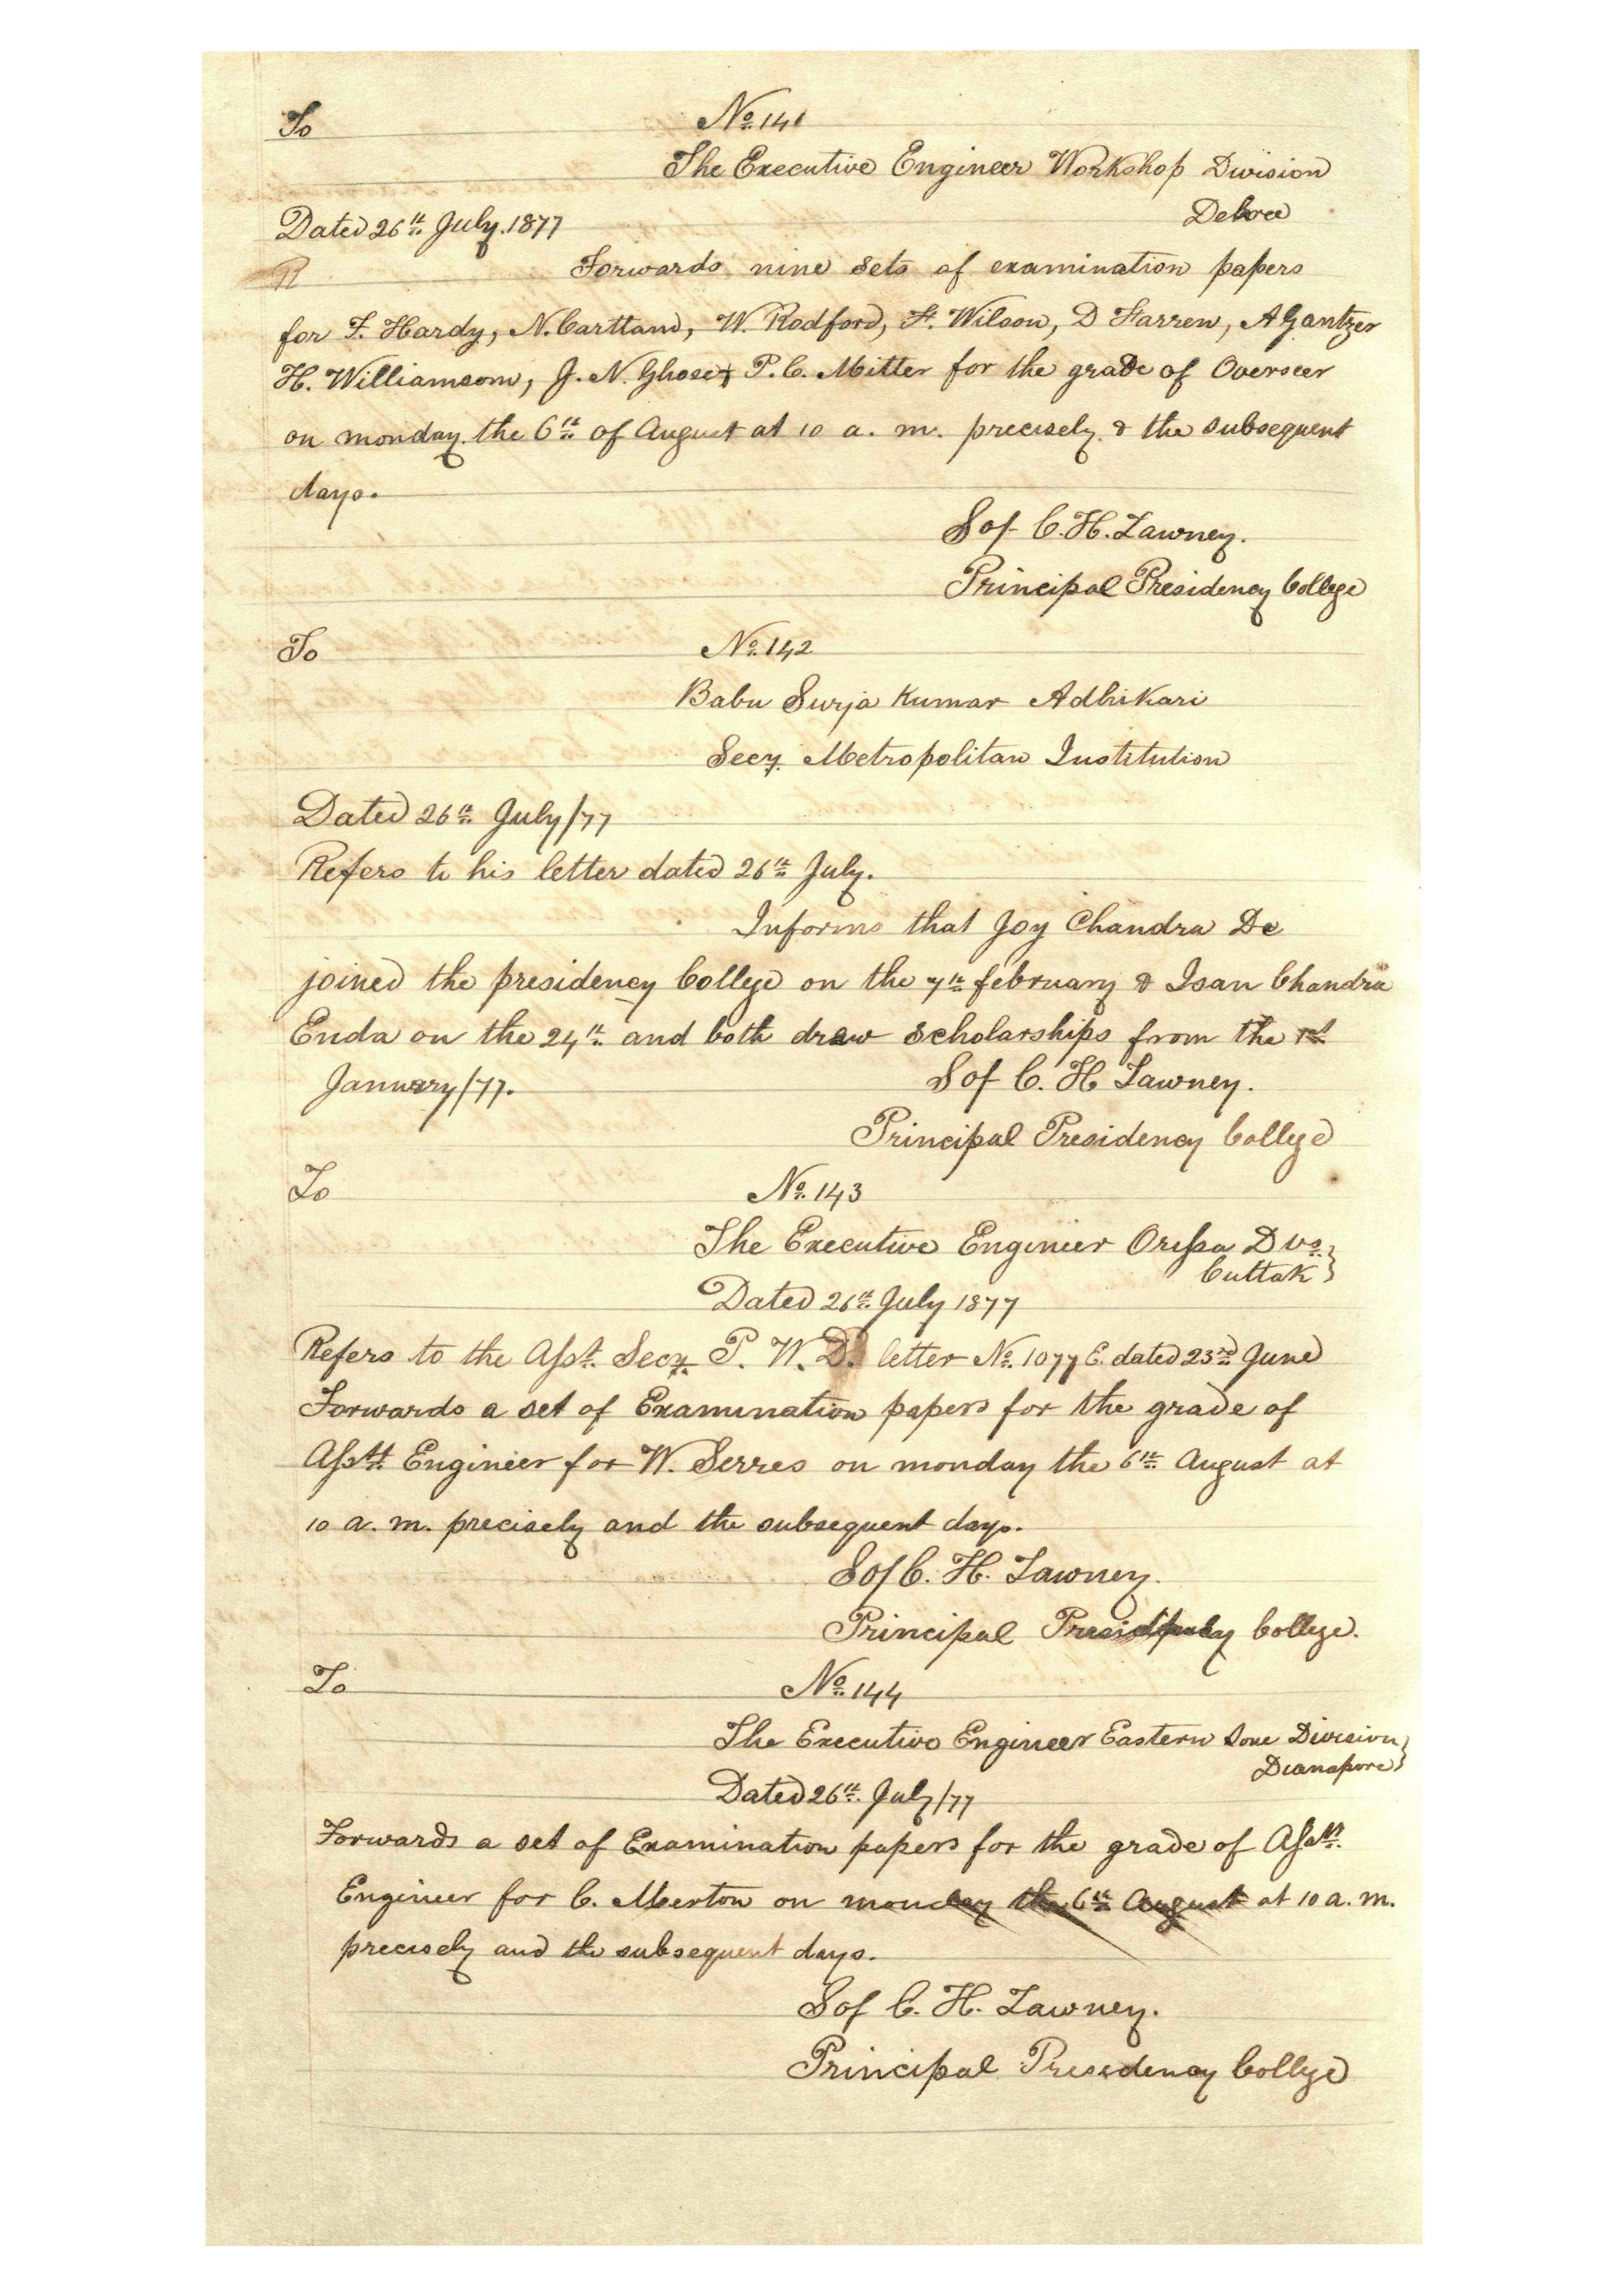 To
No. 141
The Executive Engineer Workshop Division
Dehree
Dated 26th July. 1877
R
Forwards nine sets of examination papers
for F. Hardy, N. Cartland, W. Rodford, F. Wilson, D Farren, A Gantzer
H. Williamson, J. N. Ghose & P. C. Mitter for the grade of Overseer
on monday the 6th of August at 10 a. m. precisely & the subsequent
days.
Sd/- C. H. Tawney.
Principal Presidency College
To
No. 142
Babu Surja Kumar Adhikari
Secy. Metropolitan Institution
Dated 26th July/77
Refers to his letter dated 26th July.
Informs that Joy Chandra De
joined the presidency College on the 7th february & Isan Chandra
Enda on the 24th and both draw scholarships from the 1st
January/77.
Sd/ C. H Tawney.
Principal Presidency College
To
No. 143
The Executive Engineer Orissa Dvs.
Cuttak
Dated 26th July 1877
Refers to the Asst. Secy. P. W. D. letter No. 1077 E. dated 23rd June
Forwards a set of Examination papers for the grade of
Asstt. Engineer for W. Serres on monday the 6th August at
10 a. m. precisely and the subsequent days.
Sd/ C. H. Tawney.
Principal Presidency College.
To
No. 144
The Executive Engineer Eastern Sone Division
Dinapore
Dated 26th July/77
Forwards a set of Examination papers for the grade of Asstt.
Engineer for C. Merton on monday the 6th August at 10 a. m.
precisely and the subsequent days.
Sd/ C. H. Tawney.
Principal Presidency College